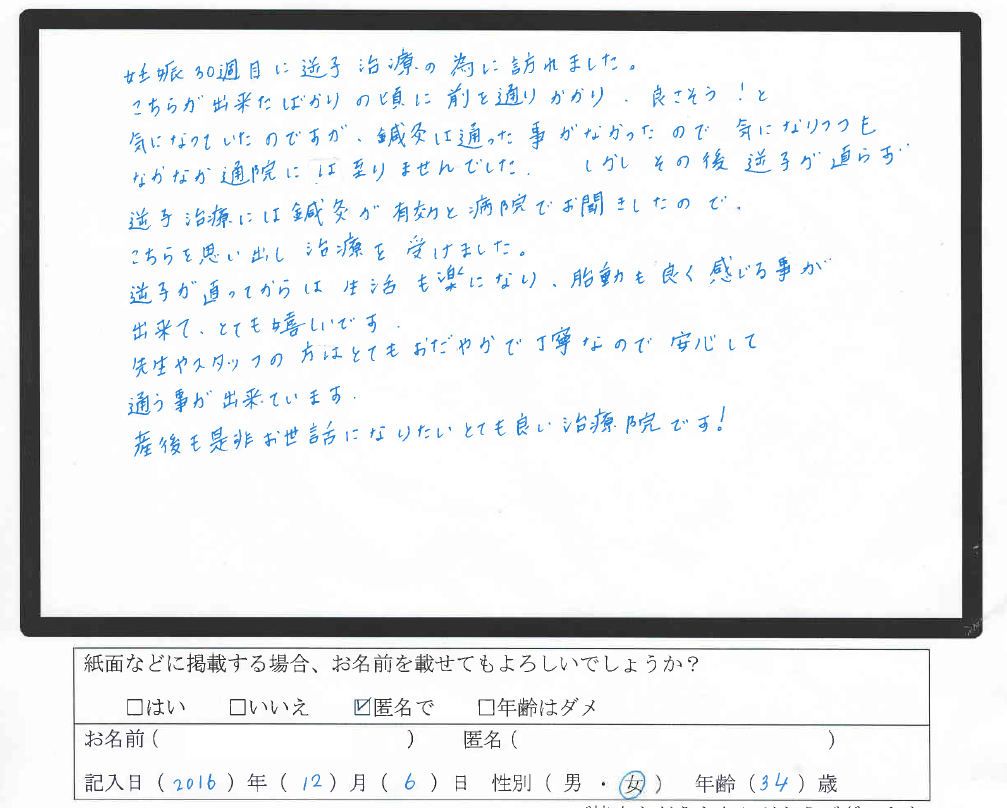 妊娠30週目に逆子治療の為に訪れました。
こちらが出来たばかりの頃に前を通りかかり、良さそう！と
気になっていたのですが、鍼灸は通った事がなかったので気になりつつも
なかなか通院には至りませんでした。しかしその後逆子が直らず
逆子治療には鍼灸が有効と病院でお聞きしたので、
こちらを思い出し治療を受けました。
逆子が直ってからは生活も楽になり、胎動も良く感じる事が
出来て、とても嬉しいです。
先生やスタッフの方はとてもおだやかで丁寧なので安心して
通う事が出来ています。
産後も是非お世話になりたいとても良い治療院です！
紙面などに掲載する場合、お名前を載せてもよろしいでしょうか？
□はい □いいえ ☑匿名で □年齢はダメ
お名前（ ） 匿名（ ）
記入日（2016）年（12）月（6）日 性別（男・女） 年齢（34）歳